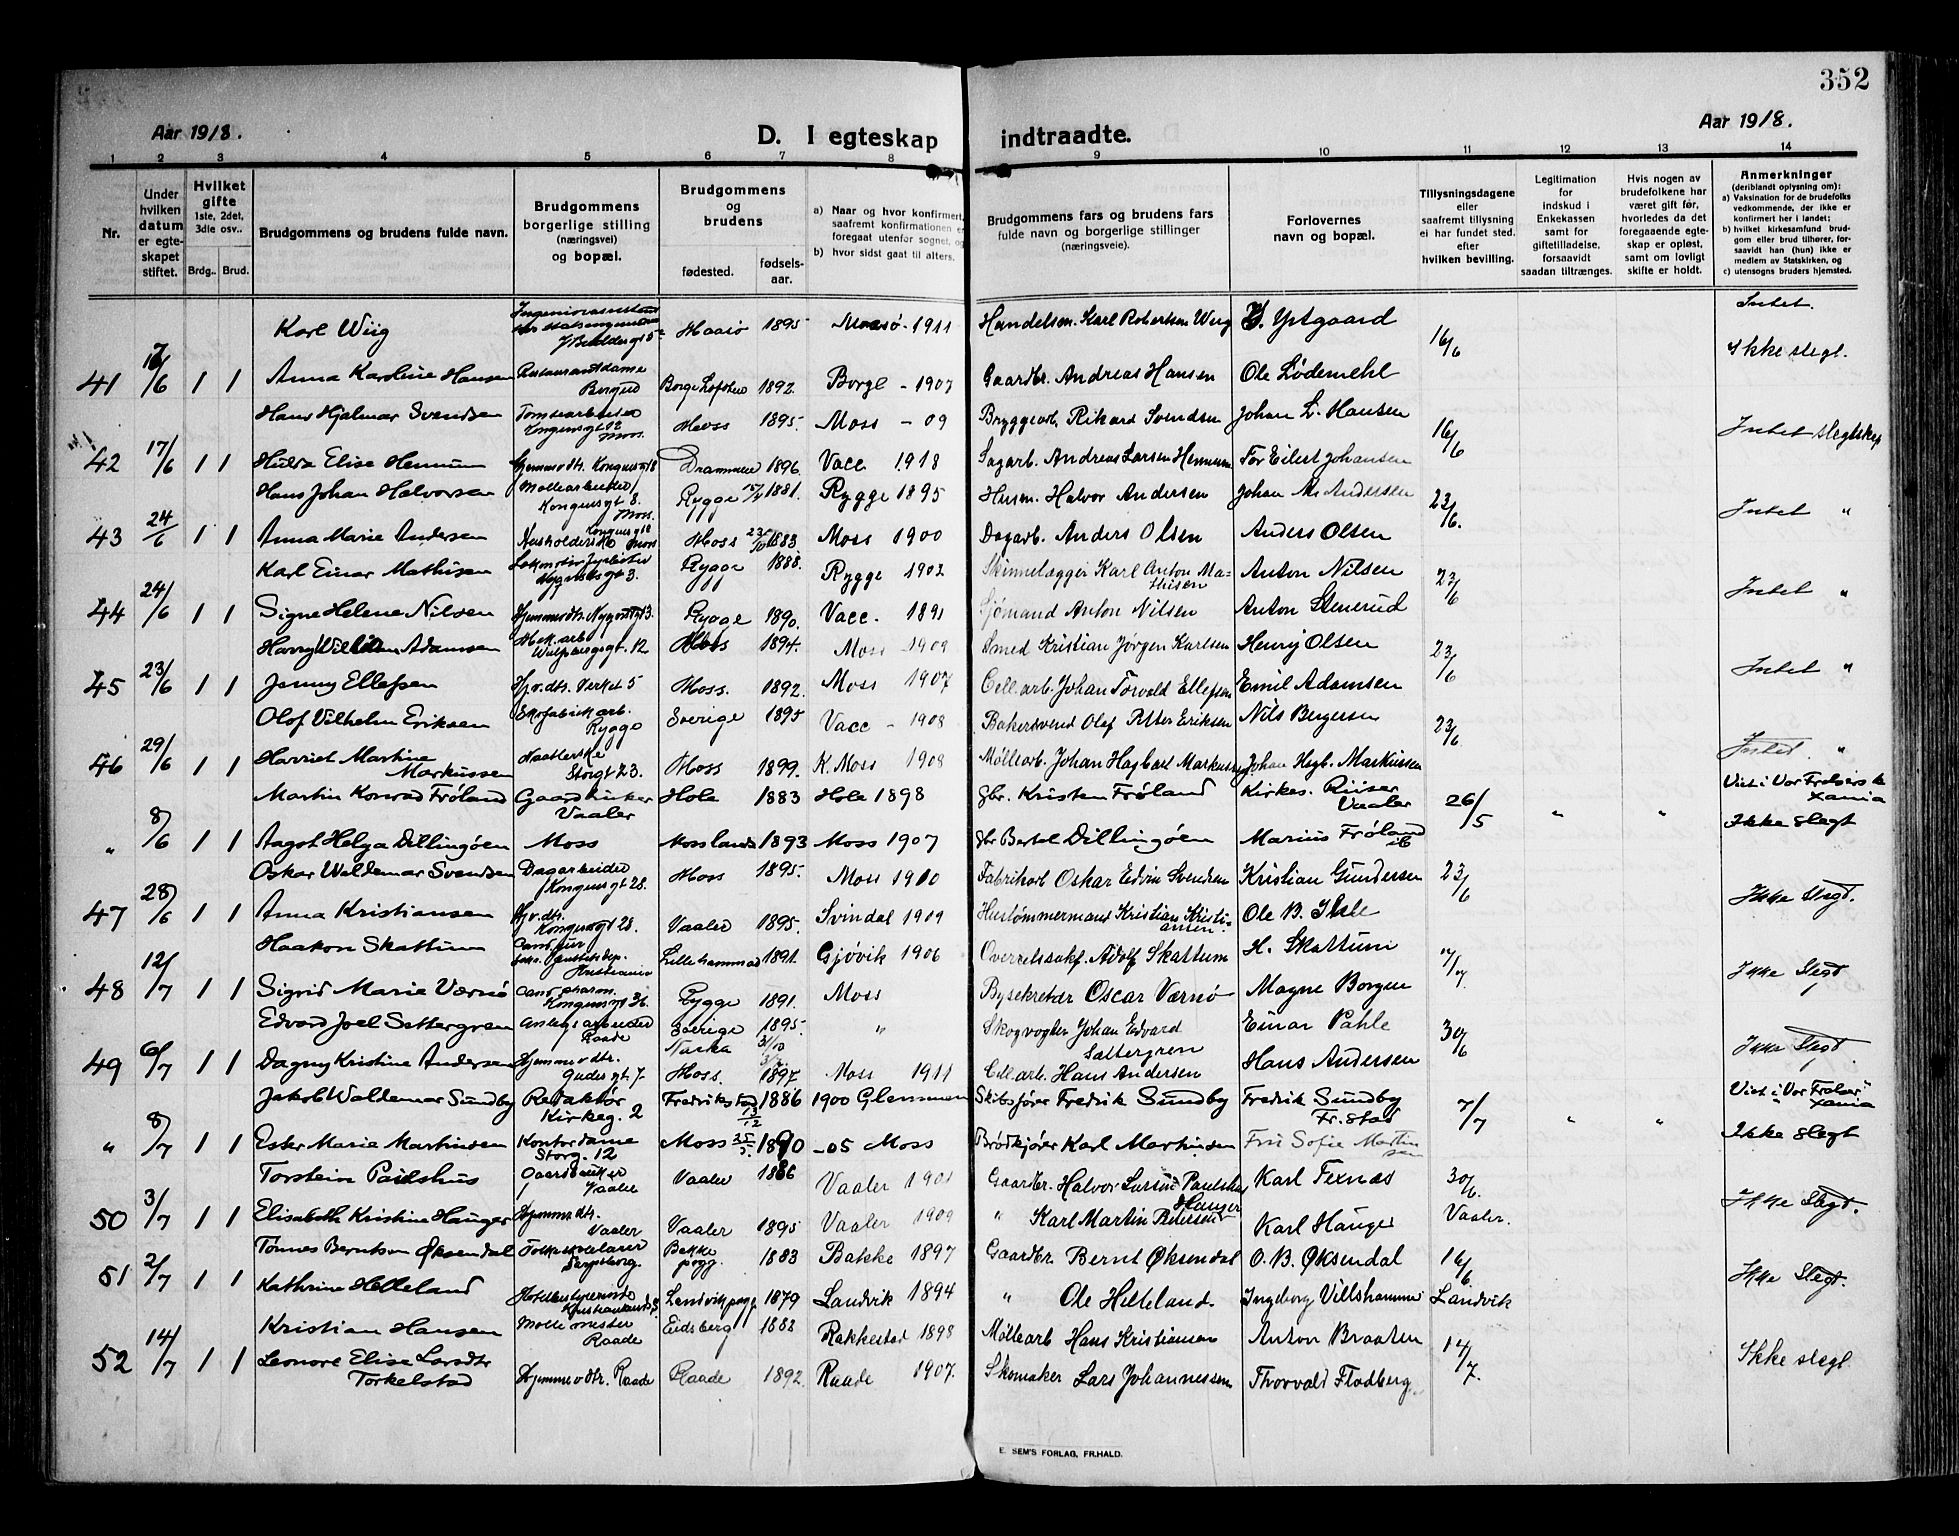 352
Aar 1918.
D. I egteskap indtraadte.
Aar 1918.
1 2 3 4 5 6 7 8 9 10 11 12 13 14
Nr.
Under hvilken datum er egteskapet stiftet.
Hvilket gifte 1ste, 2det, 3dle osv..
Brdg.. Brud.
Brudgommens og brudens fulde navn.
Brudgommens borgerlige stilling (næringsvei) og bopæl.
Brudgommens og brudens
fødested. fødselsaar.
a) Naar og hvor konfirmert, saafremt konfirmationen er foregaat utenfor sognet, og
b) hvor sidst gaat til alters.
Brudgommens fars og brudens fars fulde navn og borgerlige stillinger (næringsveie).
Forlovernes navn og bopæl.
Tillysningsdagene eller saafremt tillysning ei har fundet sted, efter hvilken bevilling.
Legitimation for indskud i Enkekassen samt for giftetilladelse, forsaavidt saadan tiltrænges.
Hvis nogen av brudefolkene har været gift før, hvorledes da det foregaaende egteskap er opløst, samt om lovligt skifte er holdt.
Anmerkninger (deriblandt oplysning om):
a) Vaksination for de brudefolks vedkommende, der ikke er konfirmert her i landet;
b) hvilket kirkesamfund brudgom eller brud tilhører, forsaavidt han (hun) ikke er medlem av Statskirken, og
c) utensogns bruders hjemsted.
Karl Wiig 1895 1911 Handelsm. Karl Robertsen Wiig Ystgaard 16/6 Intet
41 /6 1 1 Anna Karoline Hansen Restaurantdame Borge 1892. Borge - 1907 Gaardbr. Andreas Hansen Ole Lødemehl Ikke slegt.
Hans Hjalmar Svendsen Tomtearbeider Kongensgt 12 Moss. Moss 1895. Moss - 09 Bryggearb. Rikard Svendsen Johan L. Hansen 16/6
42 17/6 1 1 Hulda Elise Hennum Hjemmevdtr. Kongensgt 18 Drammen 1896. Vacc. 1918 Sagarb. Andreas Larsen Hennum Tor Eilert Johansen Intet slegtskap
Hans Johan Halvorsen Møllearbeider Kongensgt 8. Moss. Rygge 1881. Rygge 1895 Husm. Halvor Andersen Johan M. Andersen 23/6.
43 24/6 1 1 Anna Marie Andersen Husholderske Moss Moss 1883 Moss 1900 Dagarb. Anders Olsen Anders Olsen Intet "
Karl Einar Mathisen Lokomotivfyrbøter Nygaardsgt 3. Rygge 1888. Rygge 1902 Skinnelægger Karl Anton Mathisen Anton Nilsen 23/6
44 24/6 1 1 Signe Helene Nilsen Hjemmevdtr. Nygaardsgt 3. Rygge 1890. Vacc. 1891 Sjömand Anton Nilsen Anton Stenerud Intet "
Harry Wilhelm Adamsen Mek. arb. Wulfsbergsgt. 12 Moss 1894. Moss 1909 Smed Kristian Jørgen Karlsen Henry Olsen 23/6
45 23/6 1 1 Jenny Ellefsen Hjv.dtr. Verket 5 Moss. 1892. Moss 1907 Cell. arb. Johan Torvald Ellefsen Emil Adamsen Intet "
Olof Vilhelm Eriksen Skofabrikarb. Rygge Sverige 1895 Vacc - 1908 Bakersvend Olof Petter Eriksen Nils Bergersen 23/6
46 29/6 1 1 Harriet Martine Markussen Storgt 23. Moss 1899. K. Moss 1908 Møllearb. Johan Hagbart Markussen Johan Hagb. Markussen Intet "
Martin Konrad Frøland Gaardbruker Vaaler Hole 1883 Hole 1898 Gbr. Kristen Frøland Kirkes. Riiser Vaaler 26/5 " " Viet i Vor Frelsers k Xania
" 8/6 1 1 Aagot Helga Dillingøen Moss Mosslands 1893 Moss 1907 Gbr Bertel Dillingøen Marius Frøland Ikke slegt
Oskar Waldemar Svendsen Dagarbeider Kongensgt 28. Moss 1895. Moss 1910 Fabrikarb Oskar Edvin Svendsen Kristian Gundersen 23/6
47 28/6 1 1 Anna Kristiansen Hjv.dtr. Kongensgt 28. Vaaler 1895. Svindal 1909 Hustømmermand Kristian Kristiansen. Ole B. Ikke Slegt.
Haakon Skattum Cand. jur. Kristiania Lillehammer 1891. Gjøvik 1906 Overretssakf. Adolf Skattum H. Skattum /7.
48 12/7 1 1 Sigrid Marie Værnø Cand. pharm. Kongensgt 36. Rygge 1891. Moss Bysekretær Oscar Værnø Magne Borgen Ikke Slegt
Edvard Joel Settergren Anlegsarbeider Raade Sverige Narka 1895. 31/10 " Skogvogter Johan Edvard Sattergren Einar Pahle 30/6
49 6/7 1 1 Dagny Kristine Andersen Hjemmevdtr. Gudesgt. 7. Moss. 1897 Moss 1911 Cell. arb. Hans Andersen Hans Andersen Ikke Slegt
Jakob Waldemar Sundby Redaktør Kirkeg. 2 Fredrikstad 1886 1900 Glemmen Skibsfører Fredrik Sundby Fredrik Sundby Fr.stad 7/7 " " Viet i Vor Frelser Xania
" 8/7 1 1 Ester Marie Martinsen Kontordame Storg. 12 Moss 1890 -05 Moss Brødkjører Karl Martinsen Fru Sofie Martinsen Ikke slegt
Torstein Paulshus Gaardbruker Vaaler Vaaler 1886 Vaaler 1901 Gaardbr. Halvor Larsen Paulshus Karl Texnæs 30/6. Vaaler.
50 3/7 1 1 Elisabeth Kristine Haugen Hjemmevdtr. Vaaler Vaaler 1895 Vaaler 1909 " Karl Martin Petersen Haugen Karl Haugen Ikke Slegt.
Tønnes Berntsen Øksendal Folkeskolelærer Sarpsborg. Bakke pogg. 1883 Bakke 1897 Gaardbr. Bernt Øksendal O. B. Øksendal 16/6
51 2/7 1 1 Kathrine Helleland Landvik pogg. 1879 Landvik 1894 " Ole Helleland. Ingeborg Villshammer Landvik Ikke Slegt.
Kristian Hansen Møllemester Raade Eidsberg 1883 Rakkestad 1898 Møllearb Hans Kristiansen Anton Braaten 14/7.
52 14/7 1 1 Leonore Elise Larsdtr Torkelstad Hjemmevdtr. Raade Raade 1892. Raade 1907. Skomaker Lars Johannessen Thorvald Flodberg Ikke slegt.
E. SEM'S FORLAG, FR.HALD.